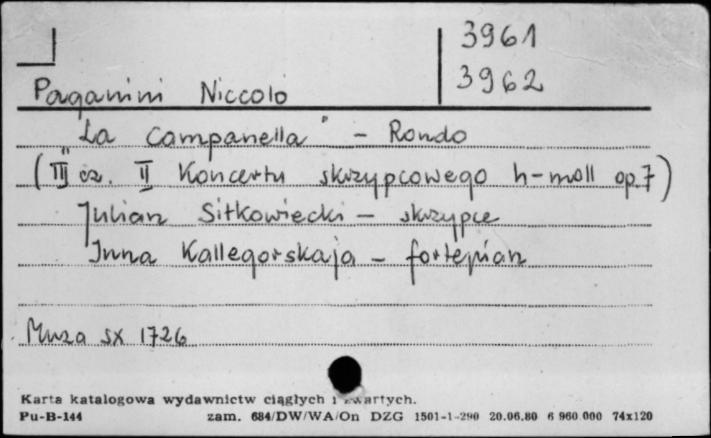 3961
3962
Paganini Niccolò
"La Campanella" - Rondo
(III cz. II Koncertu skrzypcowego h-moll op. 7)
Julian Sitkowiecki - skrzypce
Inna Kallegorskaja - fortepian
Muza SX 1726
Karta katalogowa wydawnictw ciągłych i zwartych.
Pu-B-144 zam. 684/DW/WA/On DZG 1501-1-290 20.06.80 6 960 000 74x120